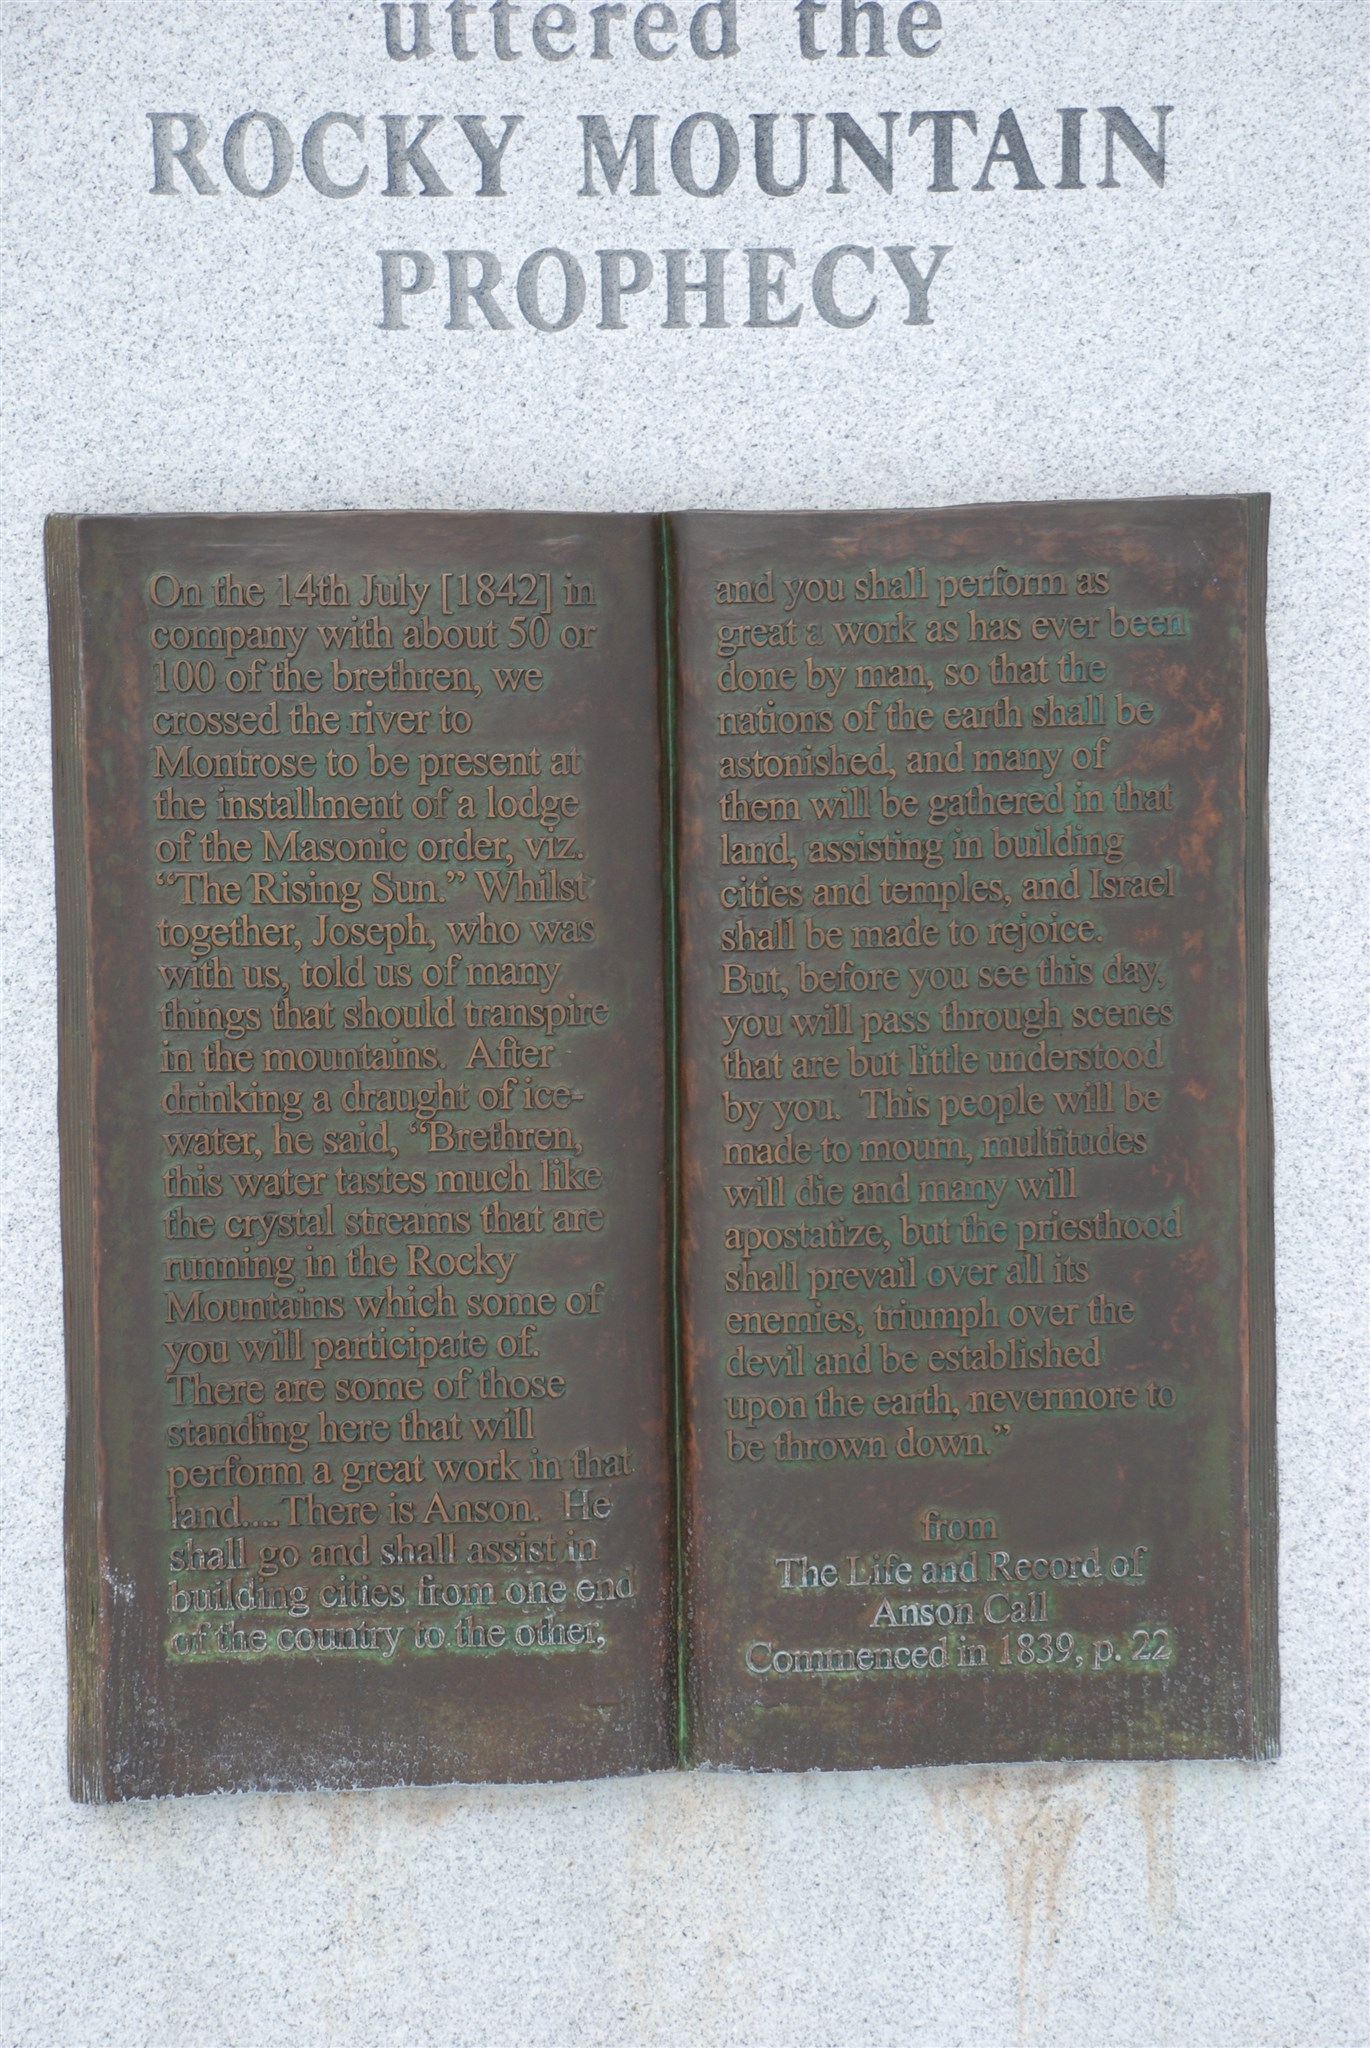 uttered the
ROCKY MOUNTAIN
PROPHECY
On the 14th July [1842] in
company with about 50 or
100 of the brethren, we
crossed the river to
Montrose to be present at
the installment of a lodge
of the Masonic order, viz.
“The Rising Sun.” Whilst
together, Joseph, who was
with us, told us of many
things that should transpire
in the mountains. After
drinking a draught of ice-
water, he said, “Brethren,
this water tastes much like
the crystal streams that are
running in the Rocky
Mountains which some of
you will participate of.
There are some of those
standing here that will
perform a great work in that
land.... There is Anson. He
shall go and shall assist in
building cities from one end
of the country to the other,
and you shall perform as
great a work as has ever been
done by man, so that the
nations of the earth shall be
astonished, and many of
them will be gathered in that
land, assisting in building
cities and temples, and Israel
shall be made to rejoice.
But, before you see this day,
you will pass through scenes
that are but little understood
by you. This people will be
made to mourn, multitudes
will die and many will
apostatize, but the priesthood
shall prevail over all its
enemies, triumph over the
devil and be established
upon the earth, nevermore to
be thrown down.”
from
The Life and Record of
Anson Call
Commenced in 1839, p. 22